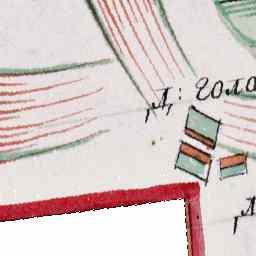 Д: голо
Д